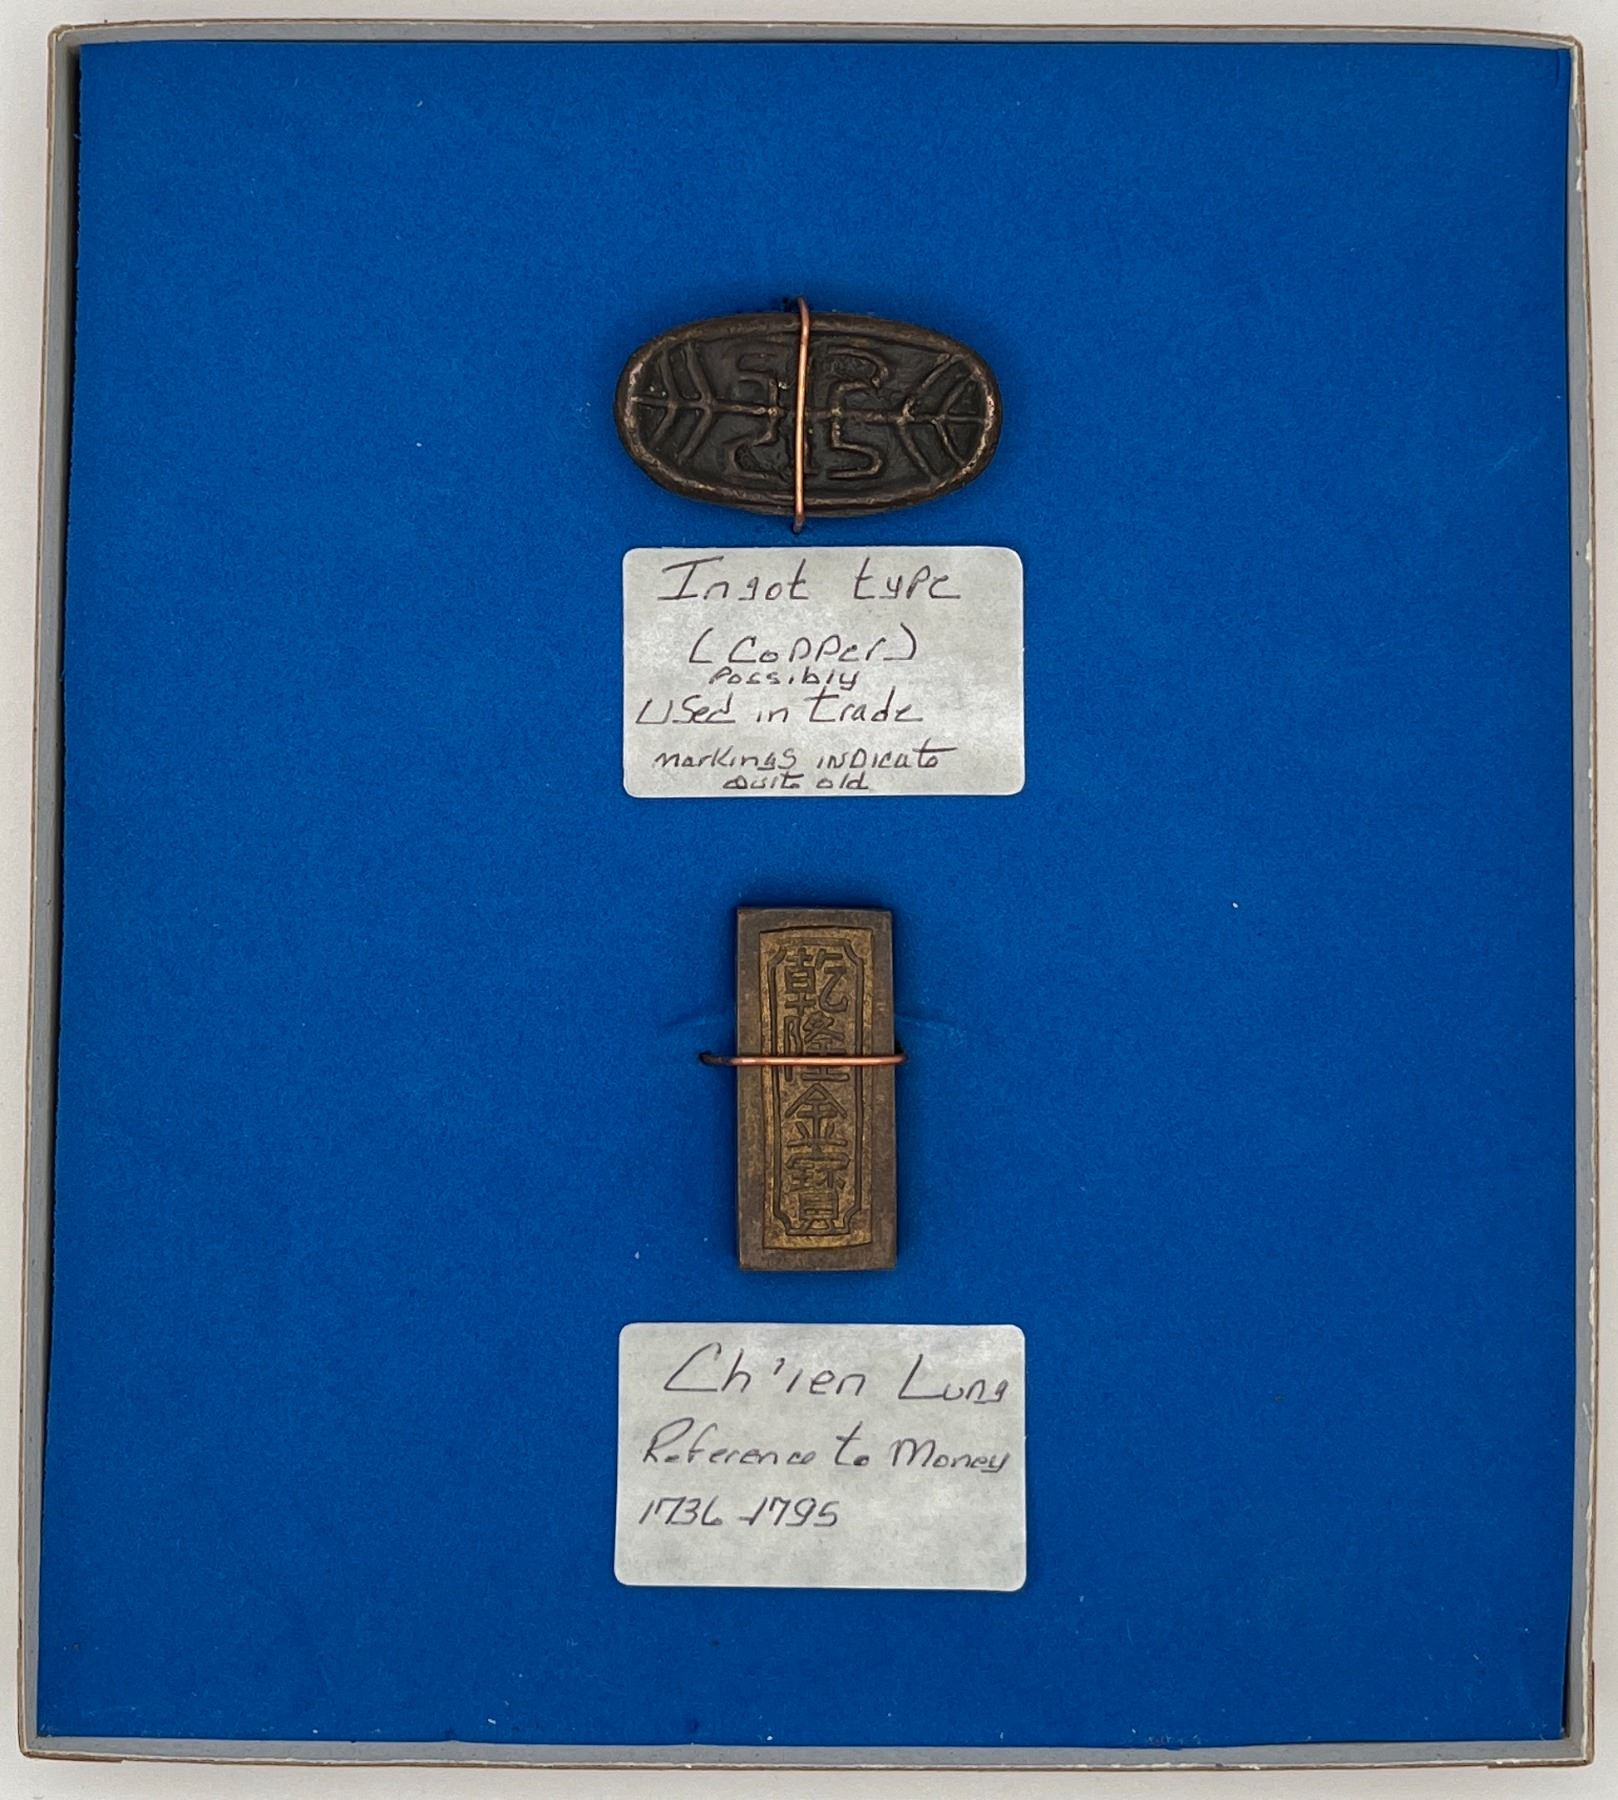 Ingot type
(Copper)
Possibly
Used in trade
markings indicate
Quite old
乾隆金寶
Ch'ien Lung
Reference to Money
1736-1795